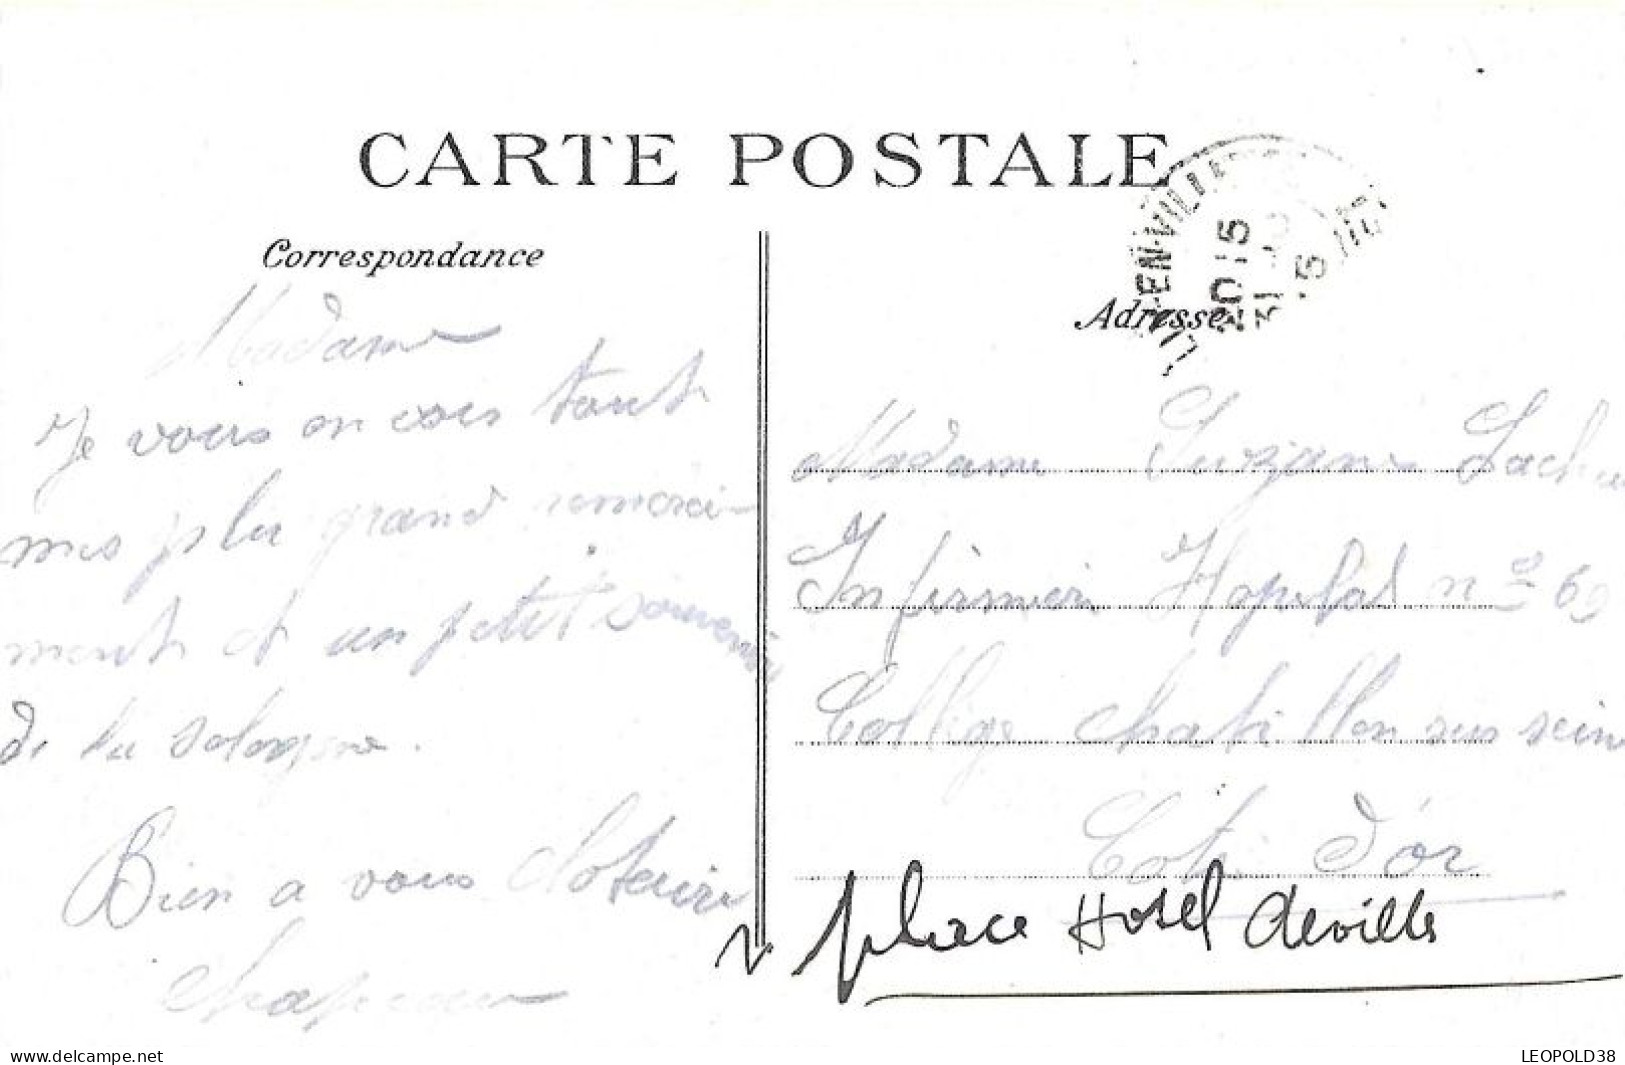 CARTE POSTALE
Correspondance
Madame
Je vous en vois tout
mes plus grand remerci
ments et un petit souvenir
de la sologne.
Bien a vous
Adresse
EN-VILL
20 15
31
Madame Suzane
Infirmieri Hopital n° 69
Collige chatillon sur seine
Coté d'or
place Hotel deville
delcampe.net
LEOPOLD38